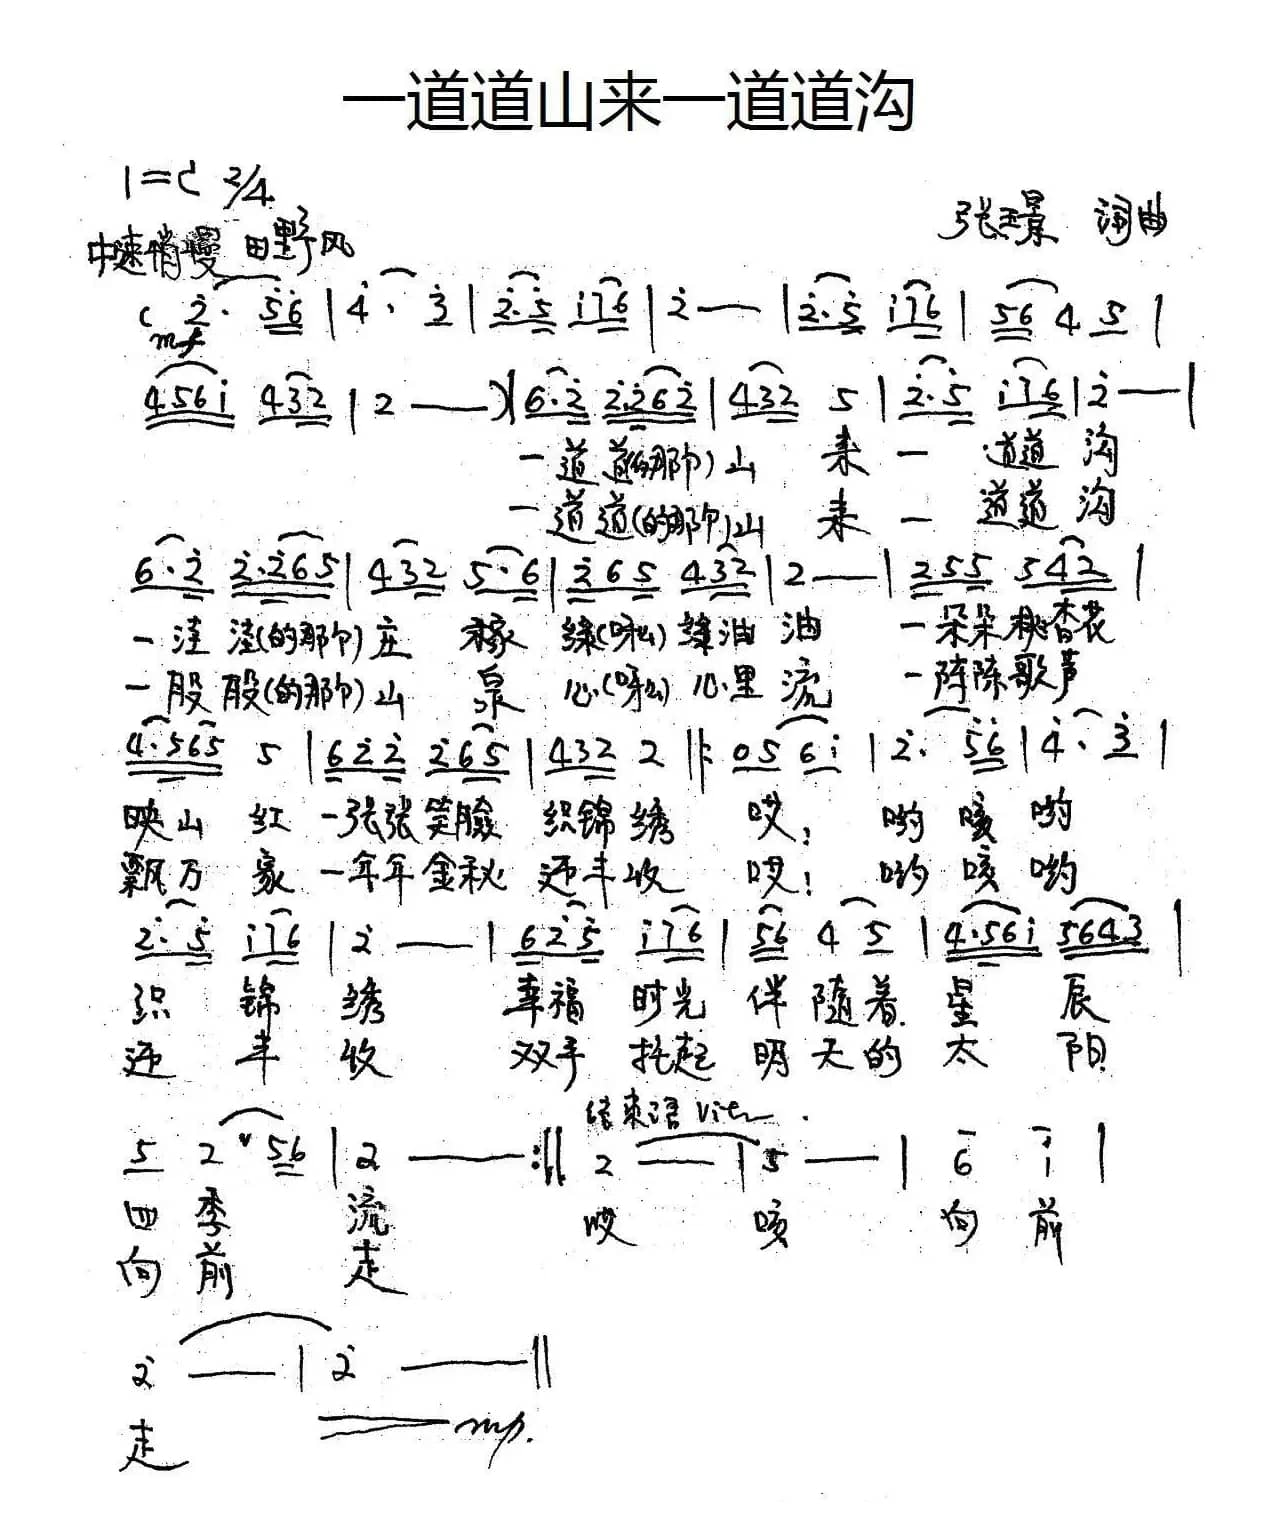 一道道山来一道道沟
1=C 2/4
张璟 词曲
中速稍慢 田野风
( 2̇· 5̇6̇ | 4̇· 3̇ | 2̇·5̇ i̇76 | 2̇ — | 2̇·5̇ i̇76 | 56 4 5 |
mf
4·56i̇ 432 | 2 — ) | 6·2̇ 2̇·2̇62̇ | 432 5 | 2̇·5̇ i̇76 | 2̇ — |
一道道(的那个)山 来 一 道道 沟
一道道(的那个)山 来 一 道道 沟
6·2̇ 2̇·2̇65 | 432 5·6 | 2̇65 432 | 2 — | 255 542 |
一洼洼(的那个)庄 稼 绿(呀么)绿油 油 一朵朵桃杏花
一股股(的那个)山 泉 心(呀么)心里 流 一阵阵歌声
4·565 5 | 62̇2̇ 2̇65 | 432 2 ‖: 05 6i̇ | 2̇· 5̇6̇ | 4̇· 3̇ |
映山 红 一张张笑脸 织锦绣 哎! 哟 咳 哟
飘万 家 一年年金秋 迎丰收 哎! 哟 咳 哟
2̇·5̇ i̇76 | 2̇ — | 62̇5̇ i̇76 | 56 4 5 | 4·56i̇ 5643 |
织 锦 绣 幸福 时光 伴 随着 星 辰
迎 丰 收 双手 托起 明 天的 太 阳
结束语
5 2 ∨ 56 | 2 — :‖ 2 — | 5 — | 6 i̇ |
四季 流 哎 咳 向 前
向前 走
2̇ — | 2̇ — ‖
走 mp.